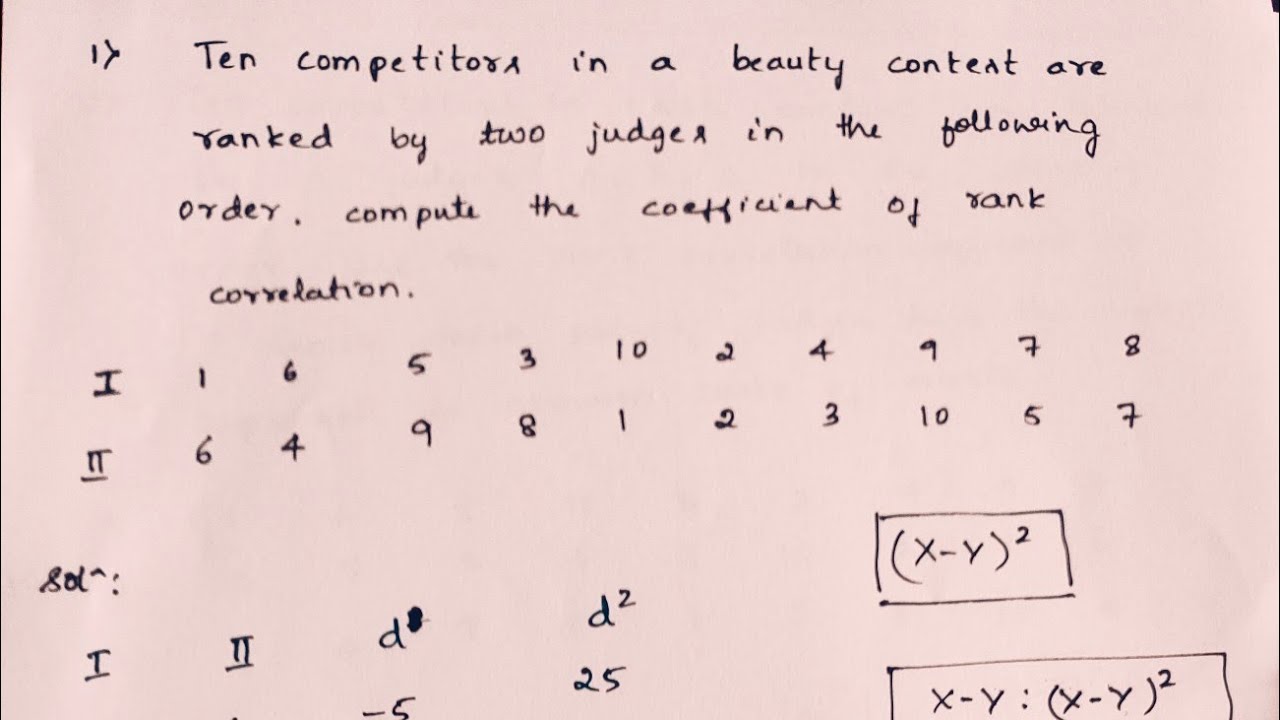 1)
Ten competitors in a beauty contest are
ranked by two judges in the following
order. compute the coefficient of rank
correlation.
I 1 6 5 3 10 2 4 9 7 8
II 6 4 9 8 1 2 3 10 5 7
(X-Y)²
Solⁿ:
I II d d²
-5 25
X-Y : (X-Y)²